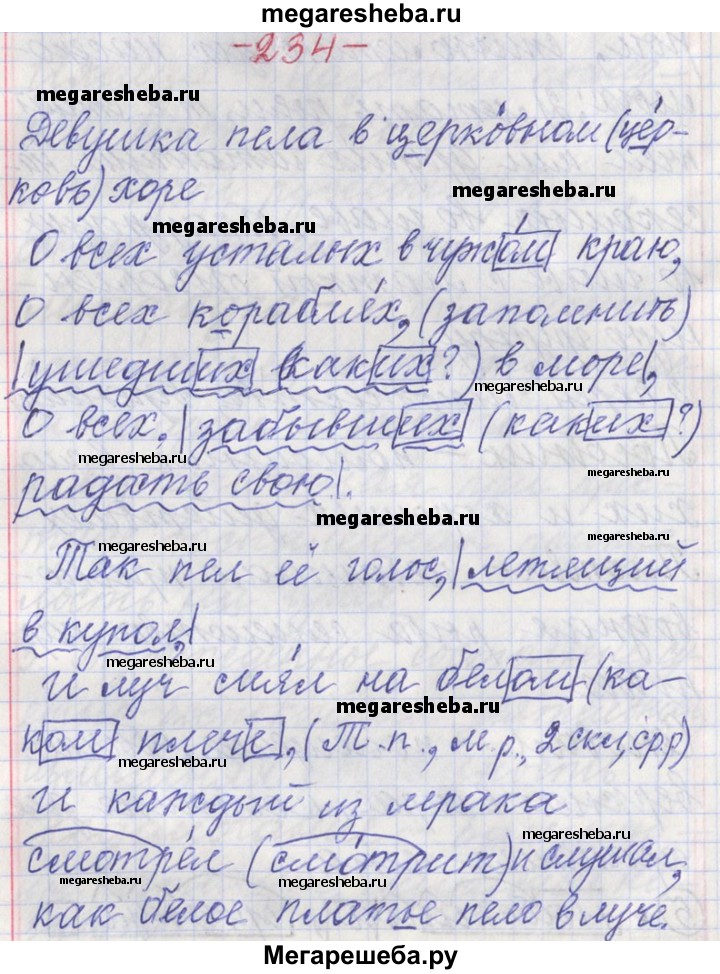 megaresheba.ru
-234-
megaresheba.ru
Девушка пела в церковном (цер-
ковь) хоре
megaresheba.ru
megaresheba.ru
О всех усталых в чужом краю,
О всех кораблях, (запомнить)
megaresheba.ru
|ушедших (каких?) в море|,
megaresheba.ru
О всех, |забывших (каких?)
megaresheba.ru
megaresheba.ru
радость свою|.
megaresheba.ru
megaresheba.ru
megaresheba.ru
Так пел её голос, |летящий
в купол,|
megaresheba.ru
И луч сиял на белом (ка-
megaresheba.ru
ком) плече, (
megaresheba.ru
И каждый из мрака
megaresheba.ru
смотрел (смотрит) и слушал,
megaresheba.ru
megaresheba.ru
как белое платье пело в луче.
Мегарешеба.ру